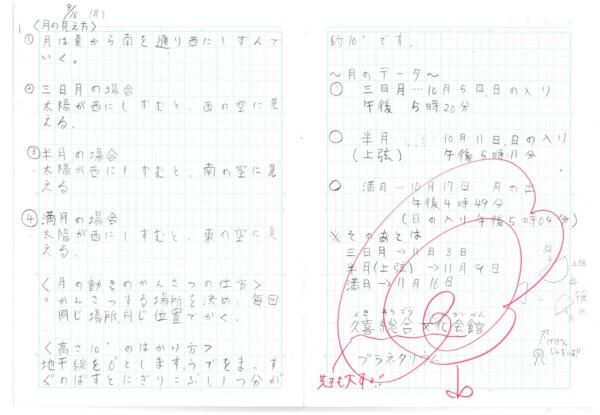 9/16 (月)
〈月の見え方〉
① 月は東から南を通り西にしずんで
いく。
② 三日月の場合
太陽が西にしずむと、西の空に見
える。
③ 半月の場合
太陽が西にしずむと、南の空に見
える
④ 満月の場合
太陽が西にしずむと、東の空に見
える。
〈月の動きのかんさつの仕方〉
・かんさつする場所を決め、毎回
同じ場所同じ位置でかく。
〈高さ10°のはかり方〉
地平線を0°とします。うでをまっす
ぐのばすとにぎりこぶし1つ分が
約10°です。
〜月のデータ〜
三日月…10月5日、日の入り
午後5時20分
半月 10月11日、日の入り
(上弦) 午後5時11分
満月…10月17日 月の出
午後4時49分
(日の入り午後5時04分)
※そのあとは
三日月→11月3日
半月(上弦)→11月9日
満月→11月16日
久喜総合文化会館
プラネタリウム
上弦